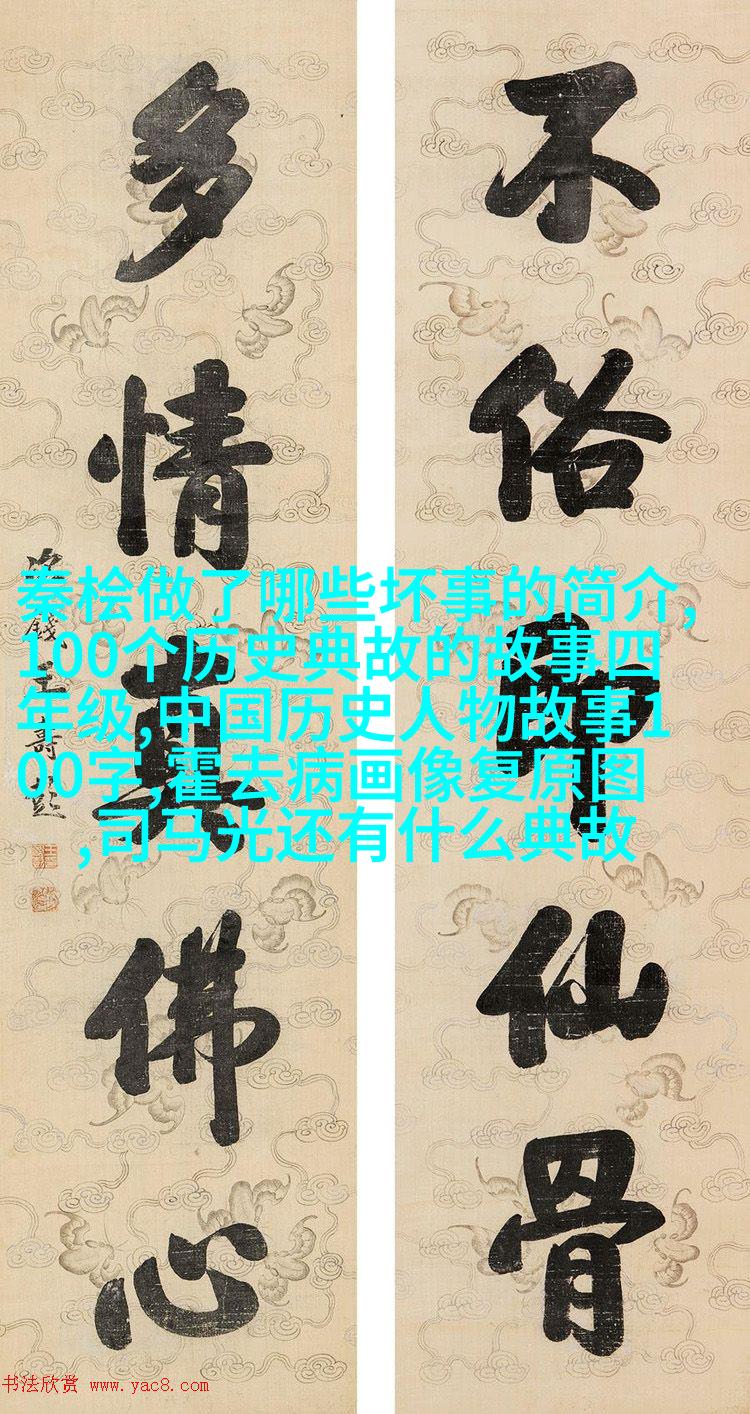 不俗即仙骨
多情真佛心
次籛王壽彭
秦桧做了哪些坏事的简介,
100个历史典故的故事四
年级,中国历史人物故事1
00字,霍去病画像复原图
,司马光还有什么典故
书法欣赏 www.yac8.com